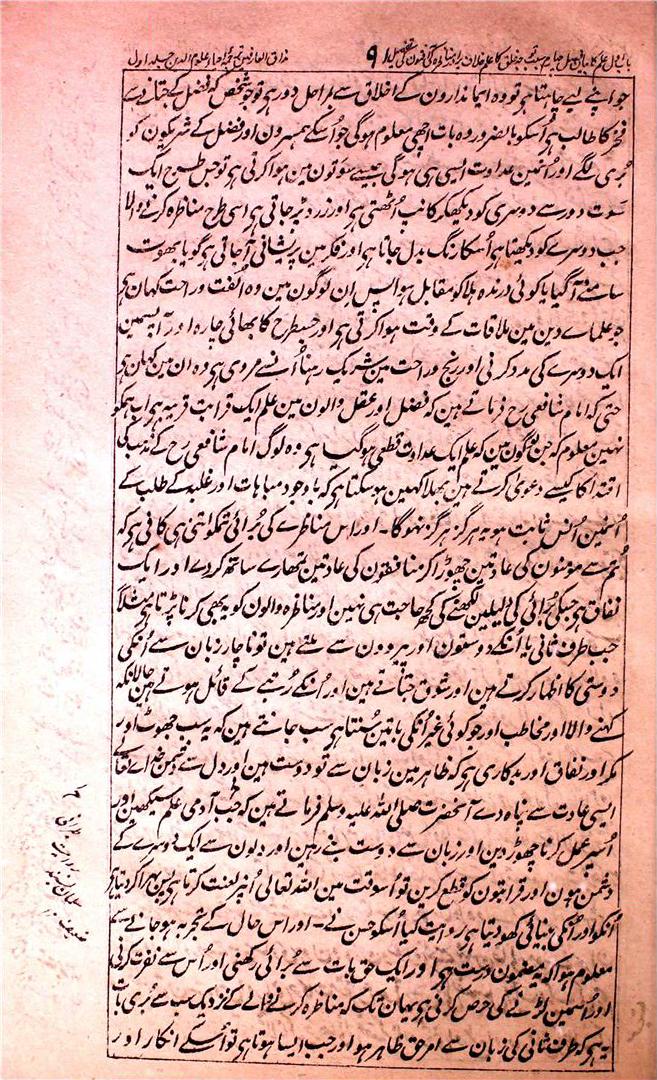 باب اول علم کا بیان فصل چہارم سبب توجہ خلق کا علم خلاف پر اور مناظرہ کی آفتون کی تفصیل ۹۱ مذاق العارفین ترجمہ احیاء علوم الدین جلد اول
جو اپنے لیے چاہتا ہی تو وہ ایماندارون کے اخلاق سے بمراحل دور ہی تو جو شخص کہ فضل کے جتانے سے
فخر کا طالب ہی اُسکو بالضرور وہ بات اچھی معلوم ہوگی جو اُسکے ہمسرون اور فضل کے شریکون کو
بُری لگے اور اُنمین عداوت ایسی ہی ہوگی جیسے سَوتون مین ہوا کرتی ہی تو جس طرح ایک
سَوت دور سے دوسری کو دیکھکر کانپ اُٹھتی ہی اور زرد پڑ جاتی ہی اسی طرح مناظرہ کرنے والا
جب دوسرے کو دیکھتا ہی اُسکا رنگ بدل جاتا ہی اور فکر مین پریشانی آجاتی ہی گویا بھوت
سامنے آگیا یا کوئی درندہ بلا کو مقابل ہوا پس اِن لوگون مین وہ اُلفت و راحت کہان ہی
جو علماے دین مین ملاقات کے وقت ہوا کرتی ہی اور جسطرح کا بھائی چارہ اور آپسمین
ایک دوسرے کی مدد کرنی اور رنج و راحت مین شریک رہنا اُنسے مروی ہی وہ ان مین کہان ہی
حتی کہ امام شافعی رح فرماتے ہین کہ فضل اور عقل والون مین علم ایک قرابت قریبہ ہی اب ہمکو
نہین معلوم کہ جن لوگون مین کہ علم ایک عداوت قطعی ہوگیا ہی وہ لوگ امام شافعی رح کے مذہب کی
اقتدا کا کیسے دعوی کرتے ہین بھلا کہین ہوسکتا ہی کہ باوجود مباہات اور غلبہ کے طلب کے
اُنمین اُنس ثابت ہو یہ ہرگز ہرگز نہوگا۔ اور اس مناظرے کی بُرائی تمکو اتنی ہی کافی ہی کہ
تُم سے مومنون کی عادتین چھوڑا کر منافقون کی عادتین تمھارے ساتھ کر دے اور ایک
نفاق ہی جسکی بُرائی کی دلیلین لکھنے کی کچھ حاجت ہی نہین اور مناظرہ والون کو یہ بھی کرنا پڑتا ہی مثلاً
جب طرف ثانی یا اُنکے دوستون اور پیروون سے ملتے ہین تو ناچار زبان سے اُنکی
دوستی کا اظہار کرتے ہین اور شوق جتاتے ہین اور اُنکے رُتبے کے قائل ہوتے ہین حالانکہ
کہنے والا اور مخاطب اور جو کوئی غیر اُنکی باتین سُنتا ہی سب جانتے ہین کہ یہ سب جھوٹ اور
مکر اور نفاق اور بدکاری ہی کہ ظاہر مین زبان سے تو دوست ہین اور دل سے دشمن خداے تعالی
ایسی عادت سے پناہ دے آنحضرت صلی اللہ علیہ وسلم فرماتے ہین کہ جب آدمی علم سیکھین اور
اُسپر عمل کرنا چھوڑ دین اور زبان سے دوست بنے رہین اور دلون سے ایک دوسرے کے
دشمن ہون اور قرابتون کو قطع کرین تو اُسوقت مین اللہ تعالی اُنپر لعنت کرتا ہی پس بہرا کر دیتا ہی
اُنکو اور اُنکی بینائی کھو دیتا ہی روایت کیا اُسکو حسن نے۔ اور اس حال کے تجربہ ہو جانے سے
معلوم ہوا کہ یہ مضمون درست ہی اور ایک حق بات سے بُرائی رکھنی اور اُس سے نفرت کرنی
اور اُسمین لڑنے کی حرص کرنی ہی یہان تک کہ مناظرہ کرنے والے کے نزدیک سب سے بُری بات
یہ ہی کہ طرف ثانی کی زبان سے امر حق ظاہر ہو اور جب ایسا ہوتا ہی تو اُسکے انکار اور